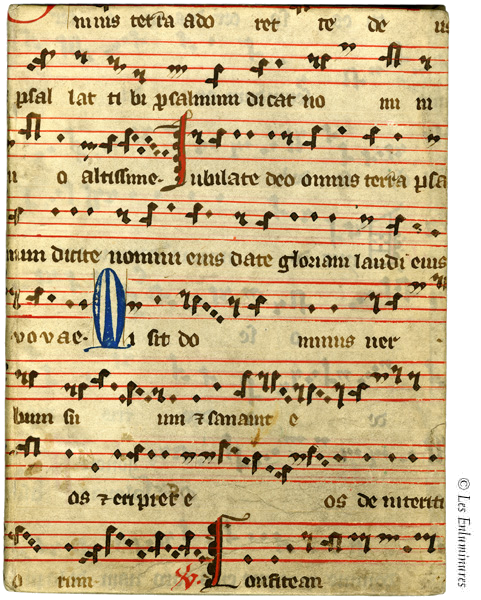 mnis terra ado ret te de us
psal lat ti bi psalmum dicat no mi ni
o altissime. Jubilate deo omnis terra psa
mum dicite nomini eius date gloriam laudi eius
vovae. Misit do minus ver
bum su um ⁊ sanavit e
os ⁊ eripu e os de interitu
o rum. ℣. Confitean
© Les Enluminures